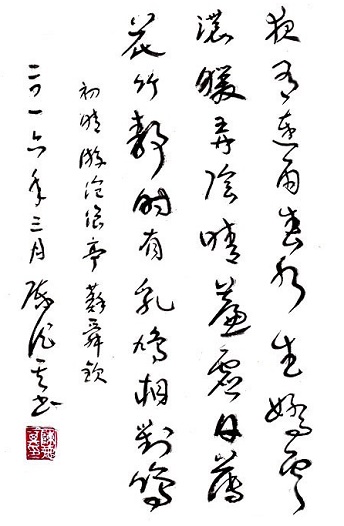 夜雨連明春水生嬌雲
濃暖弄陰晴簾虛日薄
花竹靜時有乳鳩相對鳴
初晴游滄浪亭 蘇舜欽
二〇一六年三月 書